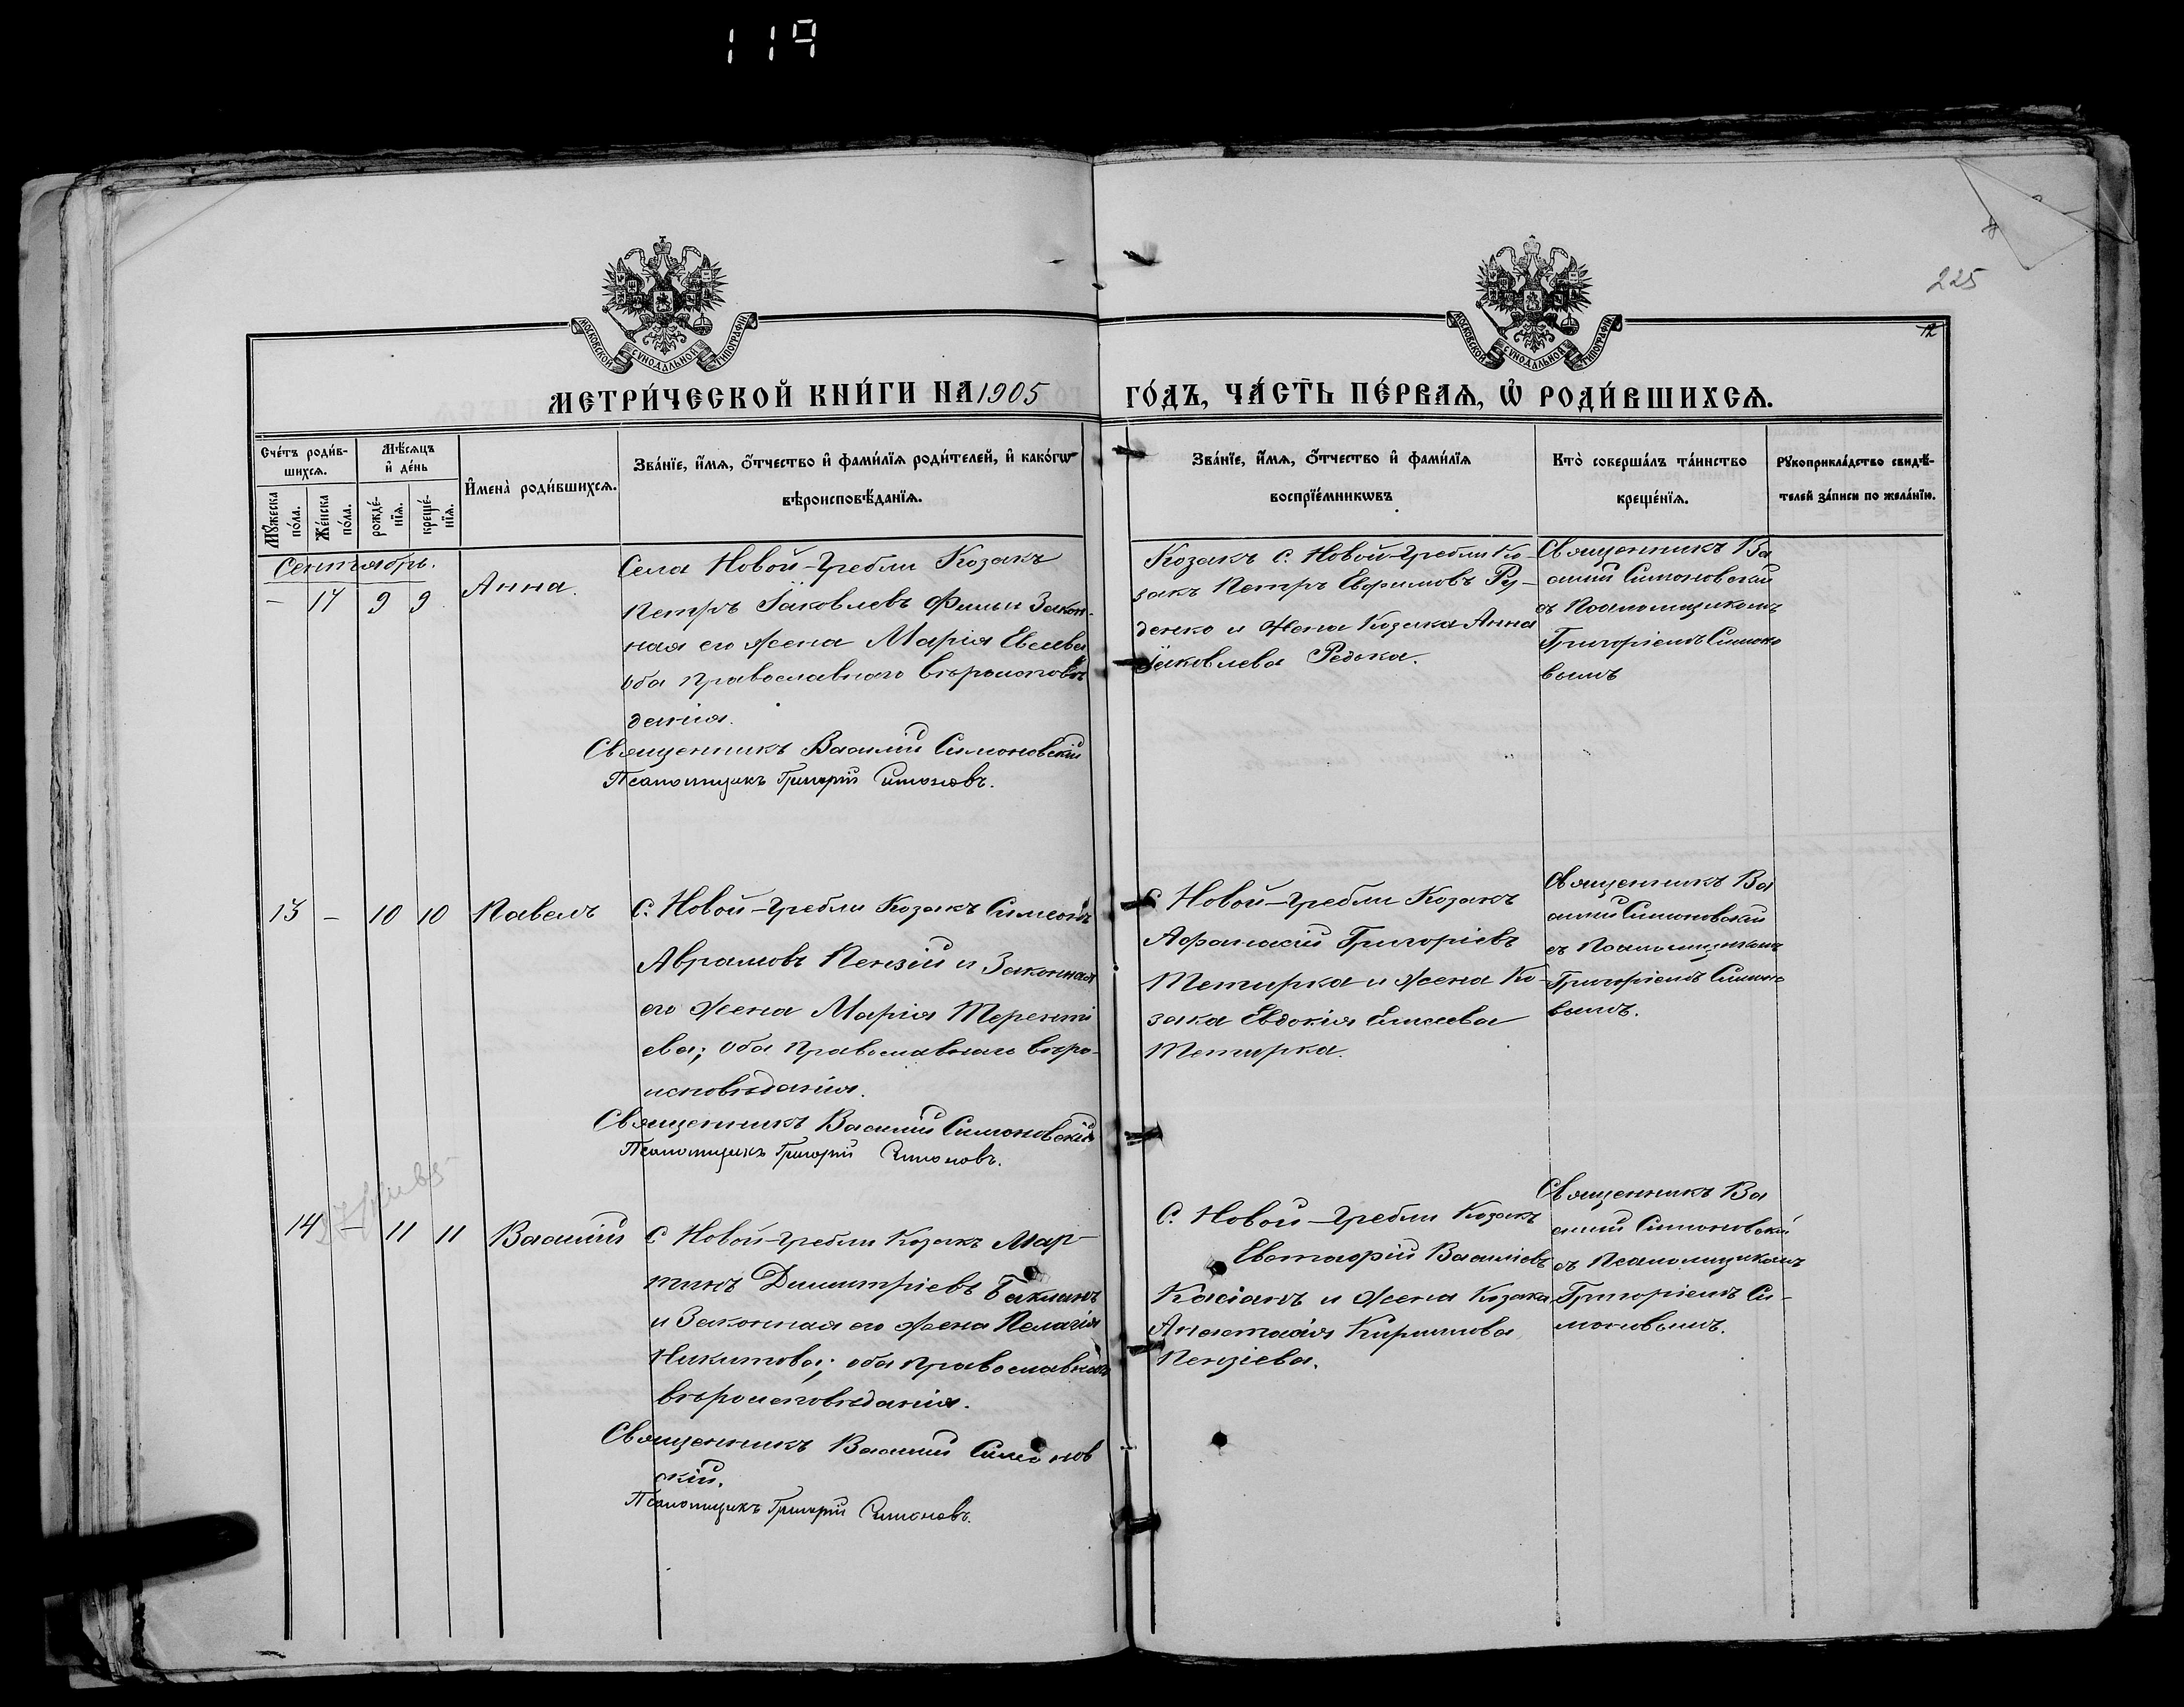 119
225
12
МОСКОВСКОЙ СѴНОДАЛЬНОЙ ТИПОГРАФІИ
МОСКОВСКОЙ СѴНОДАЛЬНОЙ ТИПОГРАФІИ
МЕТРИ́ЧЕСКОЙ КНИ́ГИ НА 1905 ГО́ДЪ, ЧА́СТЬ ПЕ́РВАѦ, Ѡ҆ РОДИ́ВШИХСѦ.
Сче́тъ роди́в-
шихсѧ.
Мꙋ́жеска
по́ла.
Же́нска
по́ла.
Мѣ́сѧцъ
и҆ де́нь
рожде́-
нїѧ.
креще́-
нїѧ.
И҆мена̀ роди́вшихсѧ.
Зва́нїе, и҆́мѧ, о҆́тчество и҆ фами́лїѧ роди́телей, и҆ како́гѡ
вѣроисповѣ́данїѧ.
Зва́нїе, и҆́мѧ, о҆́тчество и҆ фами́лїѧ
воспрїе́мникѡвъ
Кто̀ соверша́лъ та́инство
креще́нїѧ.
Рꙋкоприкла́дство свидѣ́-
телей за́писи по жела́нїю.
Сентябрь.
– 17 9 9 Анна.
Села Новой-Гребли Козакъ
Петръ Іаковлевъ и Закон-
ная его жена Марія
оба православнаго вѣроисповѣ
данія.
Священникъ Василій Симоновскій
Псаломщикъ Григорій Симоновъ.
Козакъ С. Новой-Гребли Ко-
закъ Петръ Евфимовъ Ру-
денко и жена Козака Анна
Іаковлева Редька.
Священникъ Ва
силій Симоновскій
съ Псаломщикомъ
Григоріемъ Симоно
вымъ
13 – 10 10 Павелъ
С. Новой-Гребли Козакъ Симеонъ
Аврамовъ Пензій и Законная
его жена Марія Теренті
ева; оба православнаго вѣро-
исповѣданія.
Священникъ Василій Симоновскій
Псаломщикъ Григорій Симоновъ.
С Новой-Гребли Козакъ
Афанасій Григоріевъ
Тетирка и жена Ко-
зака Евдокія Елисеева
Тетирка.
Священникъ Ва
силій Симоновскій
съ Псаломщикомъ
Григоріемъ Симоно
вымъ.
14 – 11 11 Василій
С Новой-Гребли Козакъ Мар-
тинъ Димитріевъ Бакланъ
и Законная его жена Пелагія
Никитова; оба православнаго
вѣроисповѣданія.
Священникъ Василій Симонов
скій.
Псаломщикъ Григорій Симоновъ.
С. Новой-Гребли Козакъ
Евстафій Василіевъ
Касіанъ и жена Козака
Анастасія Кириллова
Пензіева.
Священникъ Ва
силій Симоновскій
съ Псаломщикомъ
Григоріемъ Си-
моновымъ.